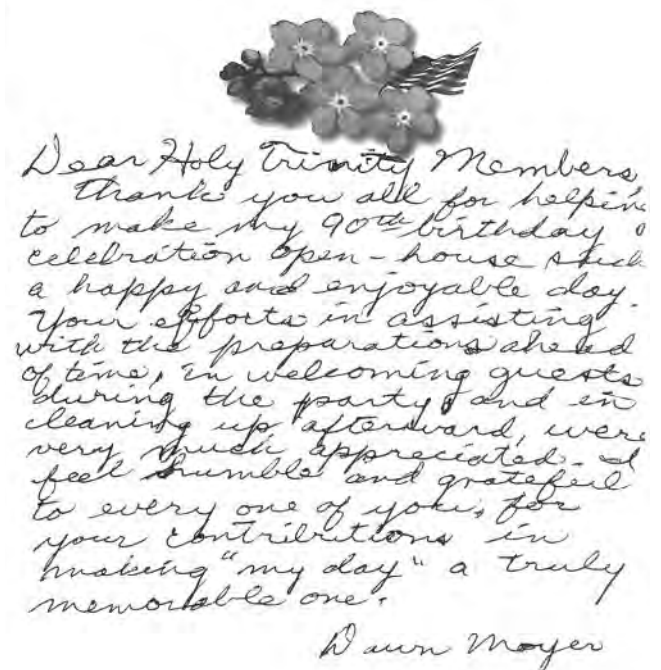 Dear Holy Trinity Members,
Thank you all for helping
to make my 90th birthday
celebration open-house such
a happy and enjoyable day.
Your efforts in assisting
with the preparations ahead
of time, in welcoming guests
during the party, and in
cleaning up afterward, were
very much appreciated. I
feel humble and grateful
to every one of you, for
your contributions in
making "my day" a truly
memorable one.
Dawn Moyer